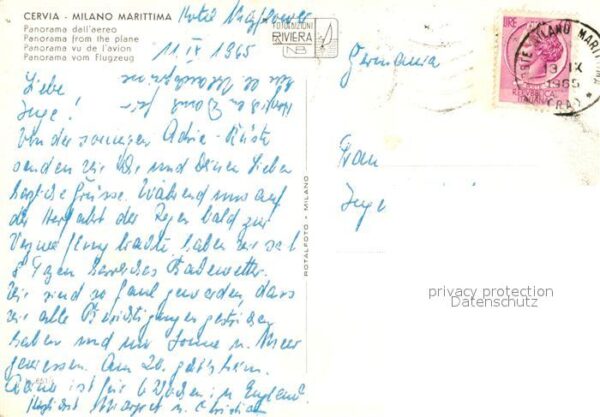 CERVIA - MILANO MARITTIMA
Panorama dall'aereo
Panorama from the plane
Panorama vu de l'avion
Panorama vom Flugzeug
Hotel
11 IX 1965
FOTOEDIZIONI
RIVIERA
NB
Liebe
Inge!
Von der sonnigen Adria-Küste
senden wir Dir und Deinen Lieben
herzliche Grüsse. Während uns auf
der Herfahrt der Regen bald zur
Verzweiflung brachte haben wir seit
8 Tagen herrliches Badewetter.
Wir sind so faul geworden, dass
wir alle Besichtigungen gestrichen
haben und nur Sonne u. Meer
geniessen. Am 20. geht's heim.
ist für 6 Wochen in England.
Herzlichst Margret u. Christian
ROTALFOTO - MILANO
Germania
Frau
Inge
LIRE
MILANO MARITTIMA
IX
1965
(RA)
privacy protection
Datenschutz